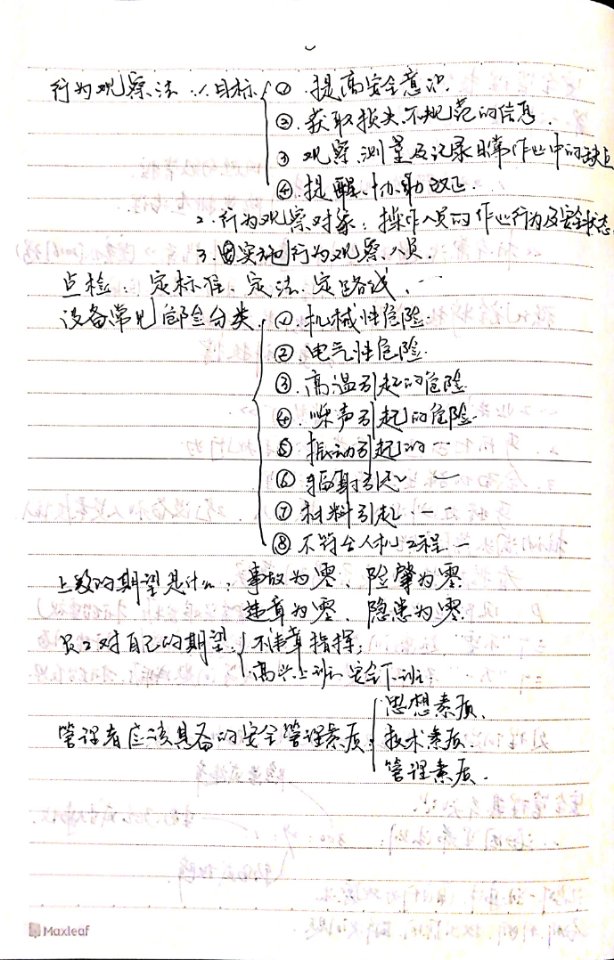 行为观察法 1.目标 ① 提高安全意识.
② 获取损失、不规范的信息.
③ 观察、测量及记录日常作业中的缺点
④ 提醒、协助改正
2. 行为观察对象: 操作人员的作业行为及安全状态
3. 实施行为观察人员.
点检: 定标准、定法、定路线、…
设备常见危险分类: ① 机械性危险.
② 电气性危险.
③ 高温引起的危险.
④ 噪声引起的危险.
⑤ 振动引起的…
⑥ 辐射引起…
⑦ 材料引起…
⑧ 不符合人机工程…
上级的期望是什么: 事故为零、险肇为零
违章为零、隐患为零.
员工对自己的期望: 不违章指挥;
高兴上班, 安全下班;
思想素质.
管理者应该具备的安全管理素质: 技术素质.
管理素质.
Maxleaf